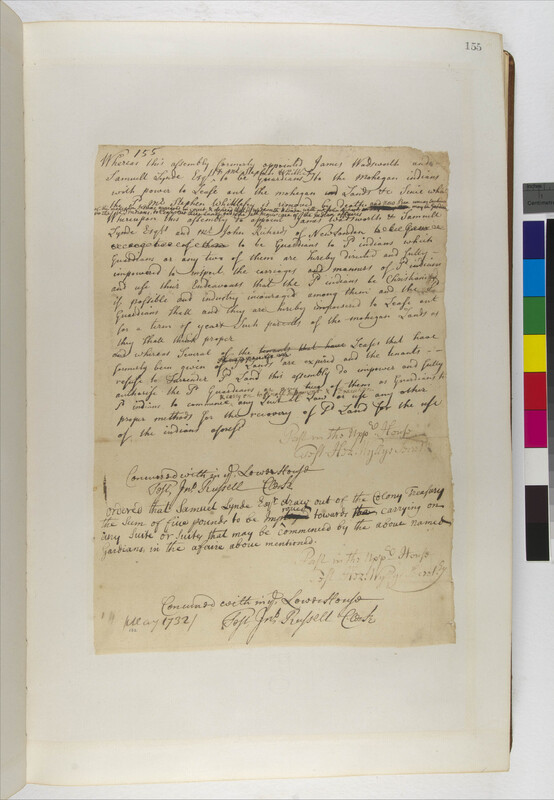 155
155
Whereas this assembly formerly appointed James Wadsworth and
Samuell Lynde Esqrs & mr Stephen Whittlesey to be Guardians to the Mohegan indians
with power to Lease out the mohegan Lands &c Since wh
the sd Mr. Stephen Whittlesey is removed by death
Whereupon this assembly do appoint James Wadsworth & Samuell
Lynde Esqrs and mr John Richards of New London
to be Guardians to sd indians which
Guardians or any two of them are hereby directed and fully
impowered to inspect the carriages and manners of sd indians
and use their Endeavours that the sd indians be Christianized
if possable and industry incouraged among them and the sd
Guardians shall and they are hereby impowered to Lease out
for a term of years Such parcels of the mohegan Lands as
they shall think proper
and whereas Severall of the tenants that have Leases that have
formerly been given of sd Lands are expired and the tenants
refuse to Surrender sd Land this assembly do impower and fully
authorise the sd Guardians or any two of them as Guardians to
sd indians to commence any Suit or use any other
proper methods for the recovery of sd Land for the use
of the indians aforesd
Past in the Uppr House
Test Hez: Wyllys Secrety
Concurred with in ye Lower House
Test, Jno Russell Clerk
ordered that Samuel Lynde Esqr draw out of the Colony Treasury
the Sum of five pounds to be towards the carrying on
any Suite or Suites that may be commenced by the above named
Gardians, in the affaire above mentioned.
Past in the Uppr House
Test Hez: Wyllys Secrety
Concurred with in ye Lower House
May 1732 / Test, Jno Russell Clerk